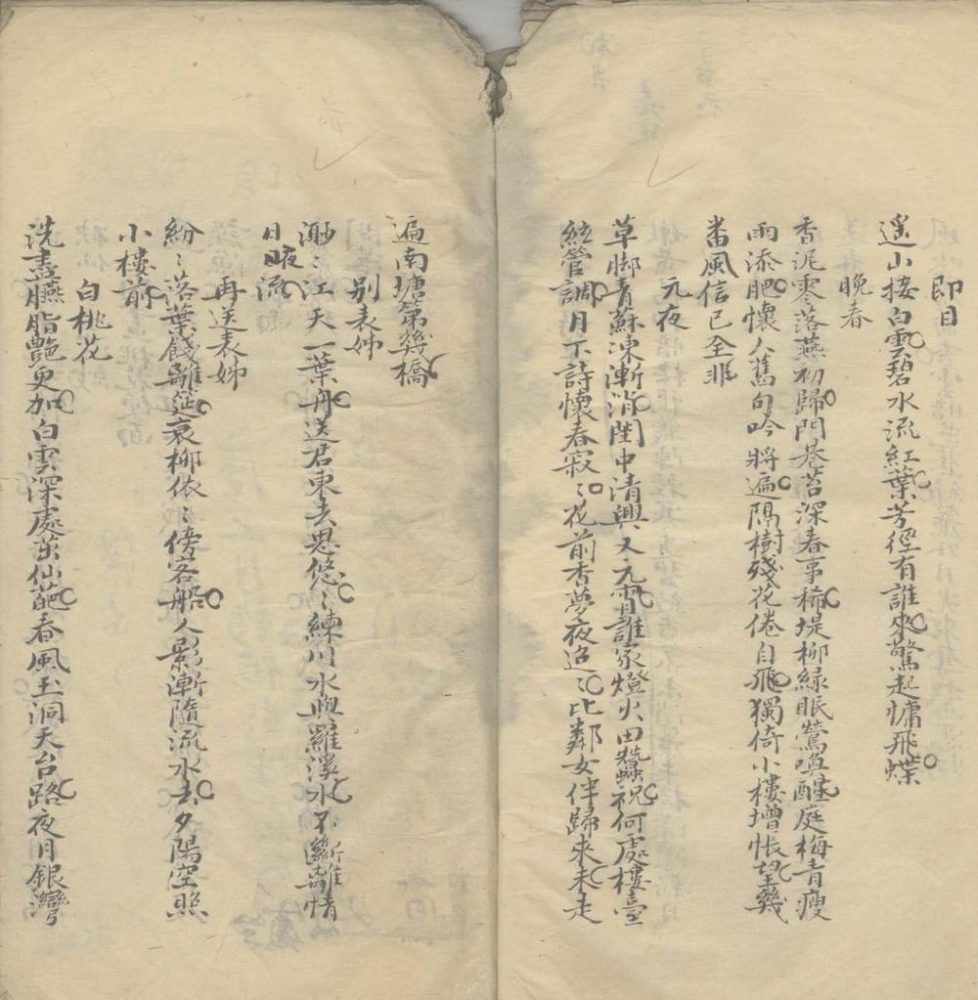 即目
遙山接白雲碧水流紅葉芳徑有誰來驚起慵飛蝶
晚春
香泥零落燕初歸門巷苔深春事稀堤柳綠眠鶯喚醒庭梅青瘦
雨添肥懷人舊句吟將遍隔樹殘花倦自飛獨倚小樓增悵望幾
番風信已全非
元夜
草腳青蘇凍漸消閨中清興又元宵誰家燈火田蠶祝何處樓臺
絃管調月下詩懷春寂〻花前香夢夜迢〻比鄰女伴歸來未走
遍南塘第幾橋
別表姊
渺〻江天一葉舟送君東去思悠〻練川水與羅溪水不斷離情
日夜流
再送表姊
紛〻落葉餞離筵衰柳依〻傍客船人影漸隨流水去夕陽空照
小樓前
白桃花
洗盡臙脂艷更加白雲深處茁仙葩春風玉洞天台路夜月銀灣